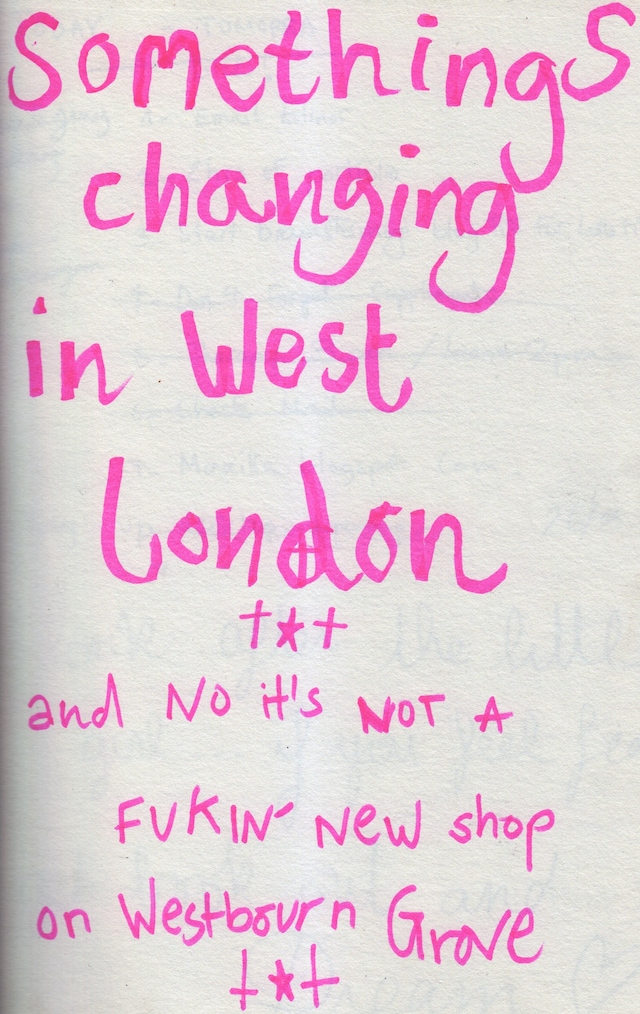 Somethings
changing
in West
London
†★†
and NO it's NOT A
FUKIN' New shop
on Westbourn Grove
†★†